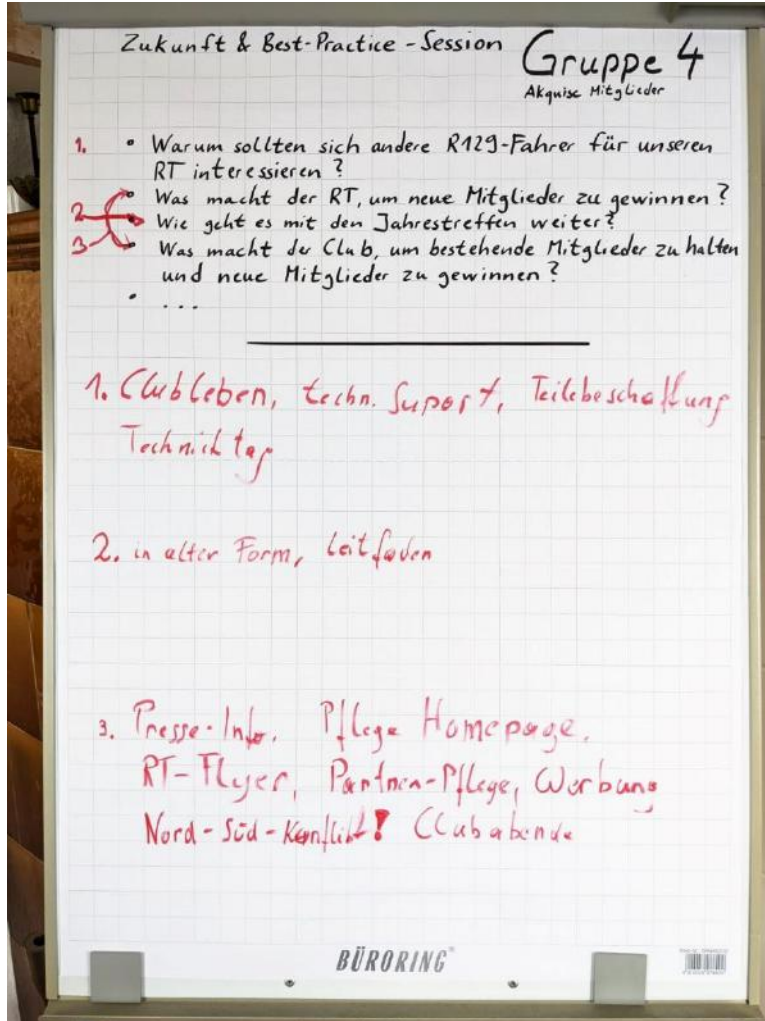 Zukunft & Best-Practice-Session
Gruppe 4
Akquise Mitglieder
1. • Warum sollten sich andere R129-Fahrer für unseren
RT interessieren?
• Was macht der RT, um neue Mitglieder zu gewinnen?
2 • Wie geht es mit den Jahrestreffen weiter?
3 • Was macht der Club, um bestehende Mitglieder zu halten
und neue Mitglieder zu gewinnen?
• ...
1. Clubleben, techn. Suport, Teilebeschaffung
Technick tag
2. in alter Form, Leitfaden
3. Presse-Info, Pflege Homepage,
RT-Flyer, Partner-Pflege, Werbung
Nord-Süd-Konflikt! Clubabende
BÜRORING